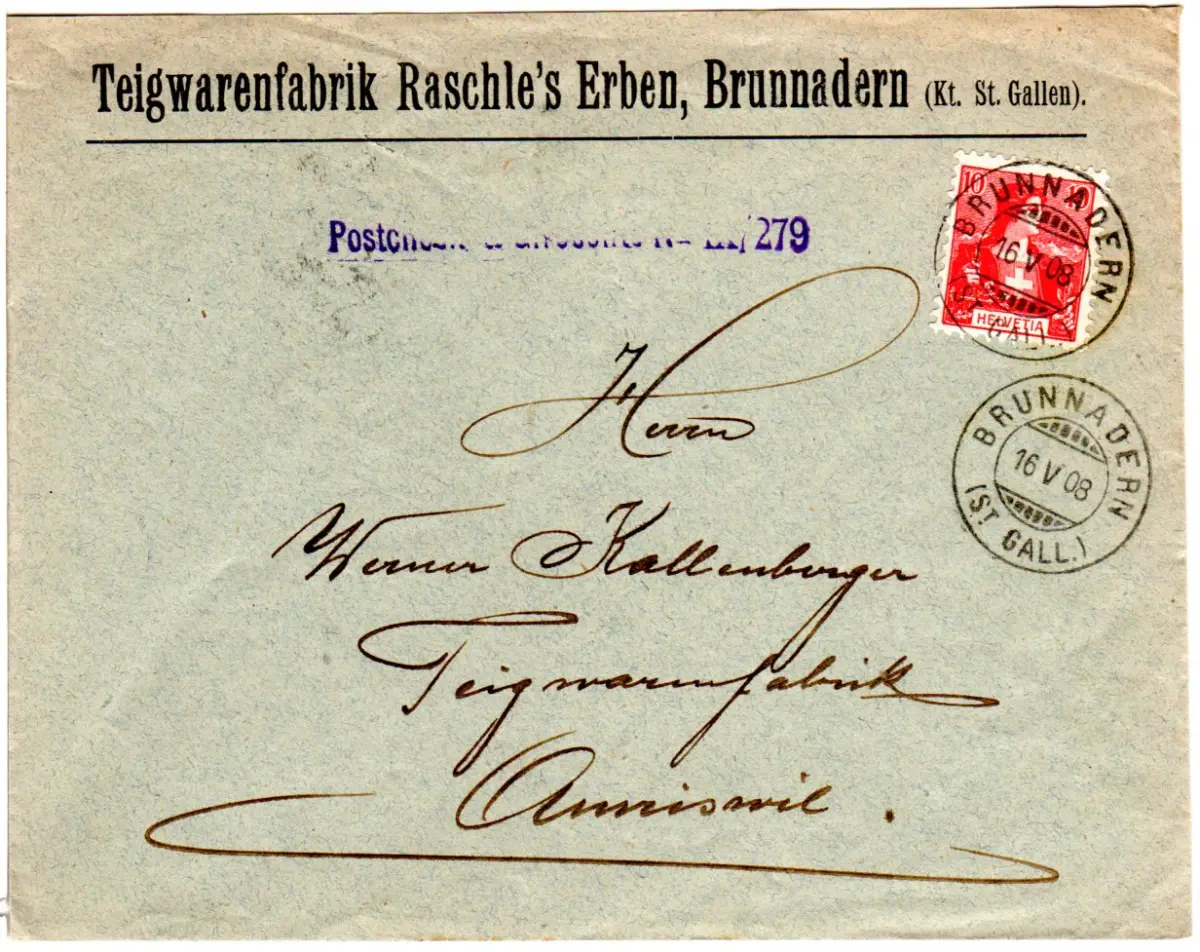 Teigwarenfabrik Raschle's Erben, Brunnadern (Kt. St. Gallen).
10 10
HELVETIA
BRUNNADERN
16 V 08
ST. GALL.
279
BRUNNADERN
16 V 08
(ST. GALL.)
Herrn
Werner Kallenberger
Teigwarenfabrik
Amriswil.